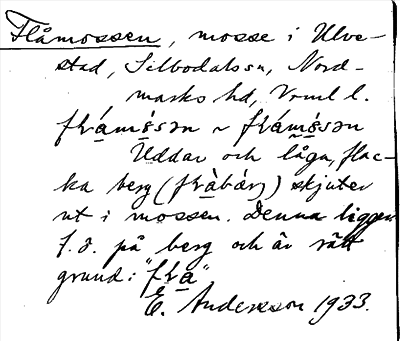 Flåmossen, mosse i Ulve-
stad, Silbodals sn, Nord-
marks hd, Vrml l.
Uddar och låga, flac-
ka berg ( ) skjuter
ut i mossen. Denna ligger
f.ö. på berg och är rätt
grund: "
E. Andersson 1933.